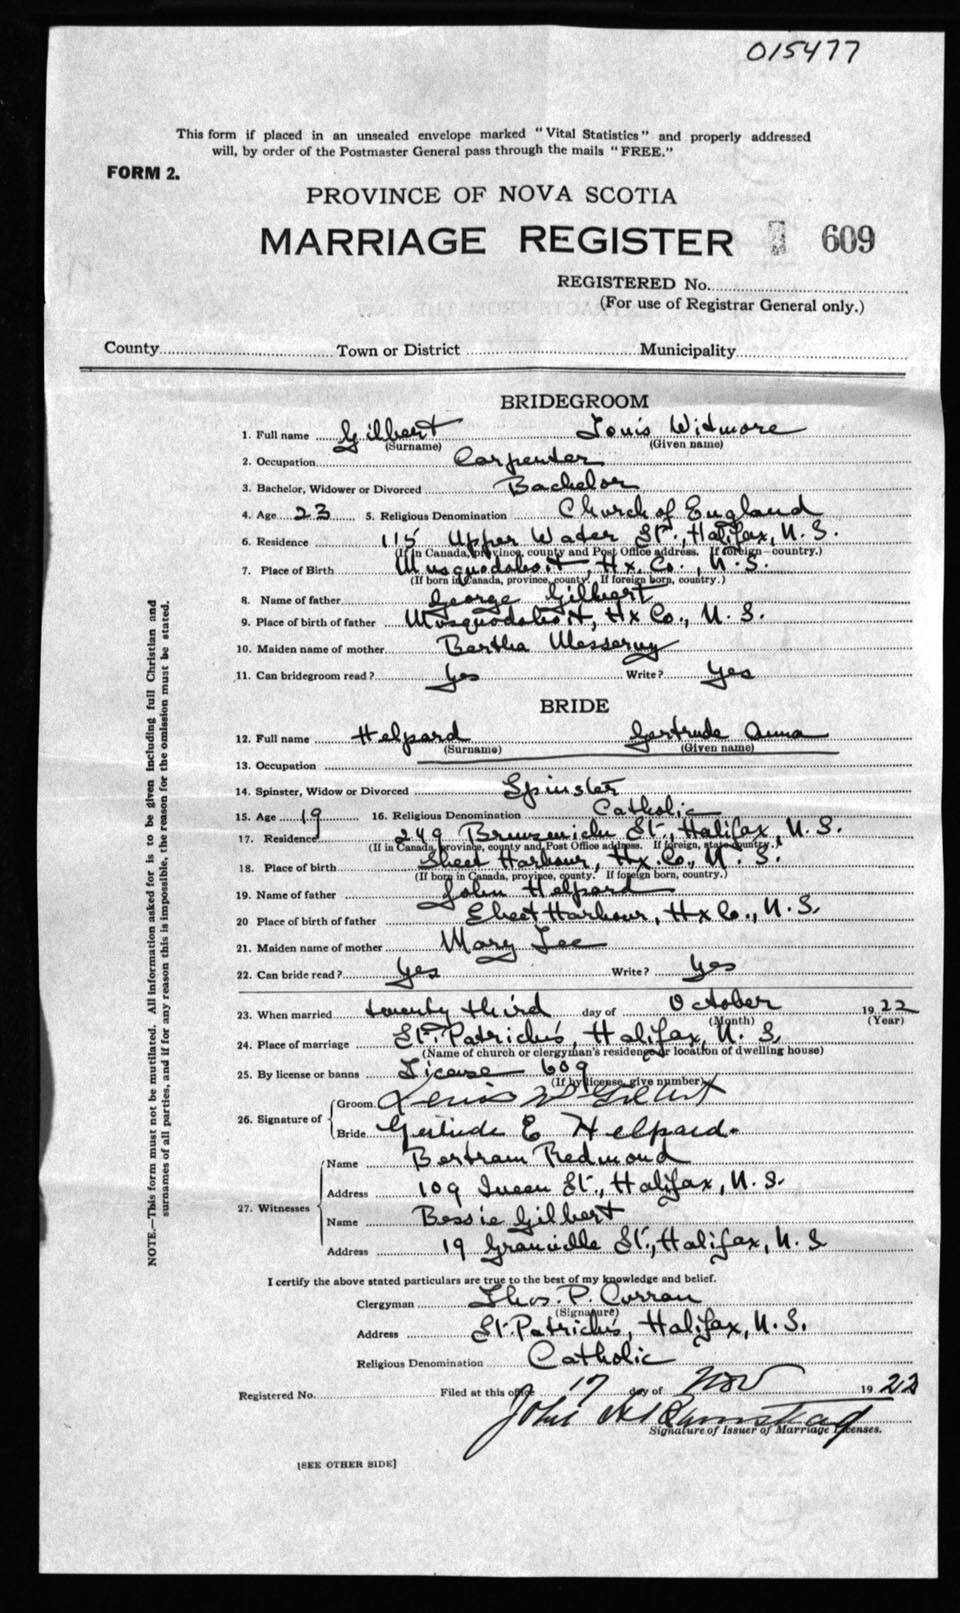 015477
This form if placed in an unsealed envelope marked "Vital Statistics" and properly addressed
will, by order of the Postmaster General pass through the mails "FREE."
FORM 2.
PROVINCE OF NOVA SCOTIA
MARRIAGE REGISTER 609
REGISTERED No.
(For use of Registrar General only.)
County Town or District Municipality
BRIDEGROOM
1. Full name Gilbert Louis Witmore
(Surname) (Given name)
2. Occupation Carpenter
3. Bachelor, Widower or Divorced Bachelor
4. Age 23 5. Religious Denomination Church of England
6. Residence 115 Upper Water St., Halifax, N. S.
(If in Canada, province, county and Post Office address. If foreign—country.)
7. Place of Birth Musquodoboit, Hx. Co., N. S.
(If born in Canada, province, county. If foreign born, country.)
8. Name of father George Gilbert
9. Place of birth of father Musquodoboit, Hx Co., N. S.
10. Maiden name of mother Bertha Messervy
11. Can bridegroom read? Yes Write? Yes
BRIDE
12. Full name Helpard Gertrude Anna
(Surname) (Given name)
13. Occupation
14. Spinster, Widow or Divorced Spinster
15. Age 19 16. Religious Denomination Catholic
17. Residence 249 St., Halifax, N. S.
(If in Canada, province, county and Post Office address. If foreign, state country.)
18. Place of birth Sheet Harbour, Hx. Co., N. S.
(If born in Canada, province, county. If foreign born, country.)
19. Name of father John Helpard
20 Place of birth of father Sheet Harbour, Hx Co., N. S.
21. Maiden name of mother Mary Lee
22. Can bride read? Yes Write? Yes
23. When married twenty third day of October 1922
(Month) (Year)
24. Place of marriage St. Patrick's, Halifax, N. S.
(Name of church or clergyman's residence or location of dwelling house)
25. By license or banns License 609
(If by license, give number)
26. Signature of Groom Louis W Gilbert
Bride Gertrude E Helpard.
27. Witnesses Name Bertram Redmond
Address 109 Queen St., Halifax, N. S.
Name Bessie Gilbert
Address 19 Granville St., Halifax, N. S
I certify the above stated particulars are true to the best of my knowledge and belief.
Clergyman Thos. P. Curran
(Signature)
Address St. Patrick's, Halifax, N. S.
Religious Denomination Catholic
Registered No. Filed at this office 17 day of Nov 1922
John
Signature of Issuer of Marriage Licenses.
[SEE OTHER SIDE]
NOTE.—This form must not be mutilated. All information asked for is to be given including full Christian and
surnames of all parties, and if for any reason this is impossible, the reason for the omission must be stated.